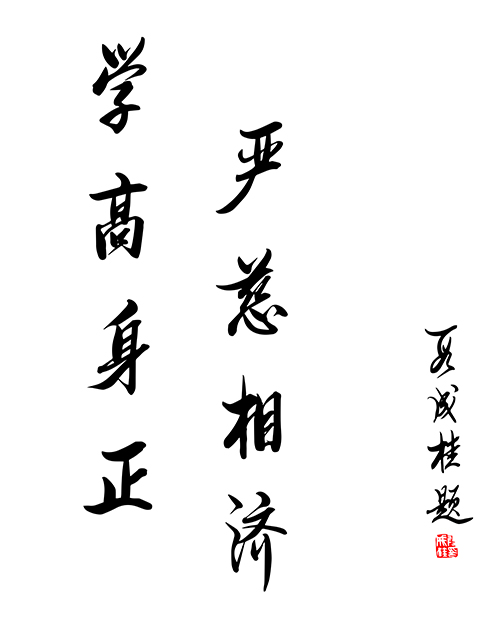 学高身正
严慈相济
段成桂题